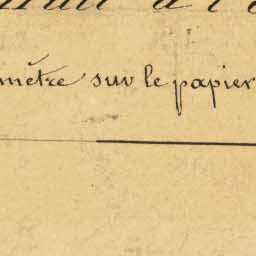 mètre sur le papier